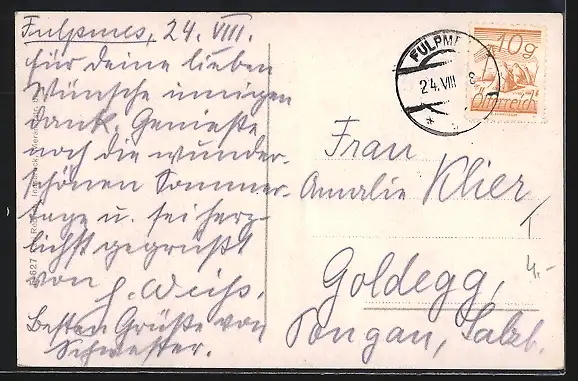 Fulpmes, 24. VIII.
für deine lieben
Wünsche innigen
Dank. Genieße
noch die wunder-
schönen Sommer-
tage u. sei herz-
lichst gegrüßt
von
Weiß.
Besten Grüße von
Schwester.
FULPME
24.VIII
10g
Österreich
Frau
Amalie Klier
Goldegg,
Pongau, Salzb.
4.-